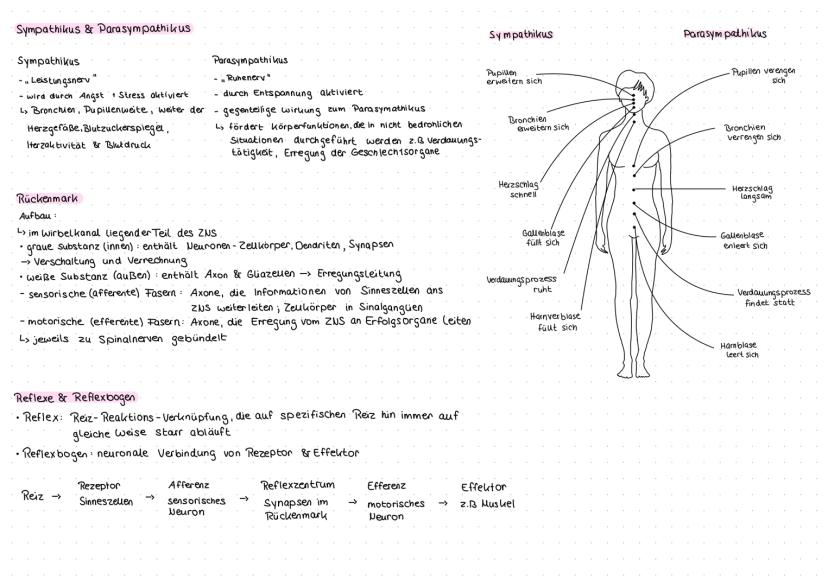 Sympathikus & Parasympathikus
Sympathikus
- „Leistungsnerv"
- wird durch Angst & Stress aktiviert
↳ Bronchien, Pupillenweite, weiter der
Herzgefäße, Blutzuckerspiegel,
Herzaktivität & Blutdruck
Parasympathikus
- „Ruhenerv"
- durch Entspannung aktiviert
- gegenteilige Wirkung zum Parasymathikus
↳ fördert Körperfunktionen, die in nicht bedrohlichen
Situationen durchgeführt werden z.B Verdauungs-
tätigkeit, Erregung der Geschlechtsorgane
Rückenmark
Aufbau:
↳ im Wirbelkanal liegender Teil des ZNS
• graue Substanz (innen): enthält Neuronen-Zellkörper, Dendriten, Synapsen
→ Verschaltung und Verrechnung
• weiße Substanz (außen): enthält Axon & Gliazellen → Erregungsleitung
- sensorische (afferente) Fasern: Axone, die Informationen von Sinneszellen ans
ZNS weiterleiten; Zellkörper in Sinalganglien
- motorische (efferente) Fasern: Axone, die Erregung vom ZNS an Erfolgsorgane leiten
↳ jeweils zu Spinalnerven gebündelt
Reflexe & Reflexbogen
• Reflex: Reiz-Reaktions-Verknüpfung, die auf spezifischen Reiz hin immer auf
gleiche Weise starr abläuft
• Reflexbogen: neuronale Verbindung von Rezeptor & Effektor
Reiz →
Rezeptor
Sinneszellen
→
Afferenz
sensorisches
Neuron
→
Reflexzentrum
Synapsen im
Rückenmark
→
Efferenz
motorisches
Neuron
→
Effektor
z.B Muskel
Sympathikus
Pupillen
erweitern sich
Bronchien
erweitern sich
Herzschlag
schnell
Gallenblase
füllt sich
Verdauungsprozess
ruht
Harnverblase
füllt sich
Parasympathikus
Pupillen verengen
sich
Bronchien
verrengen sich
Herzschlag
langsam
Gallenblase
enleert sich
Verdauungsprozess
findet statt
Harnblase
leert sich